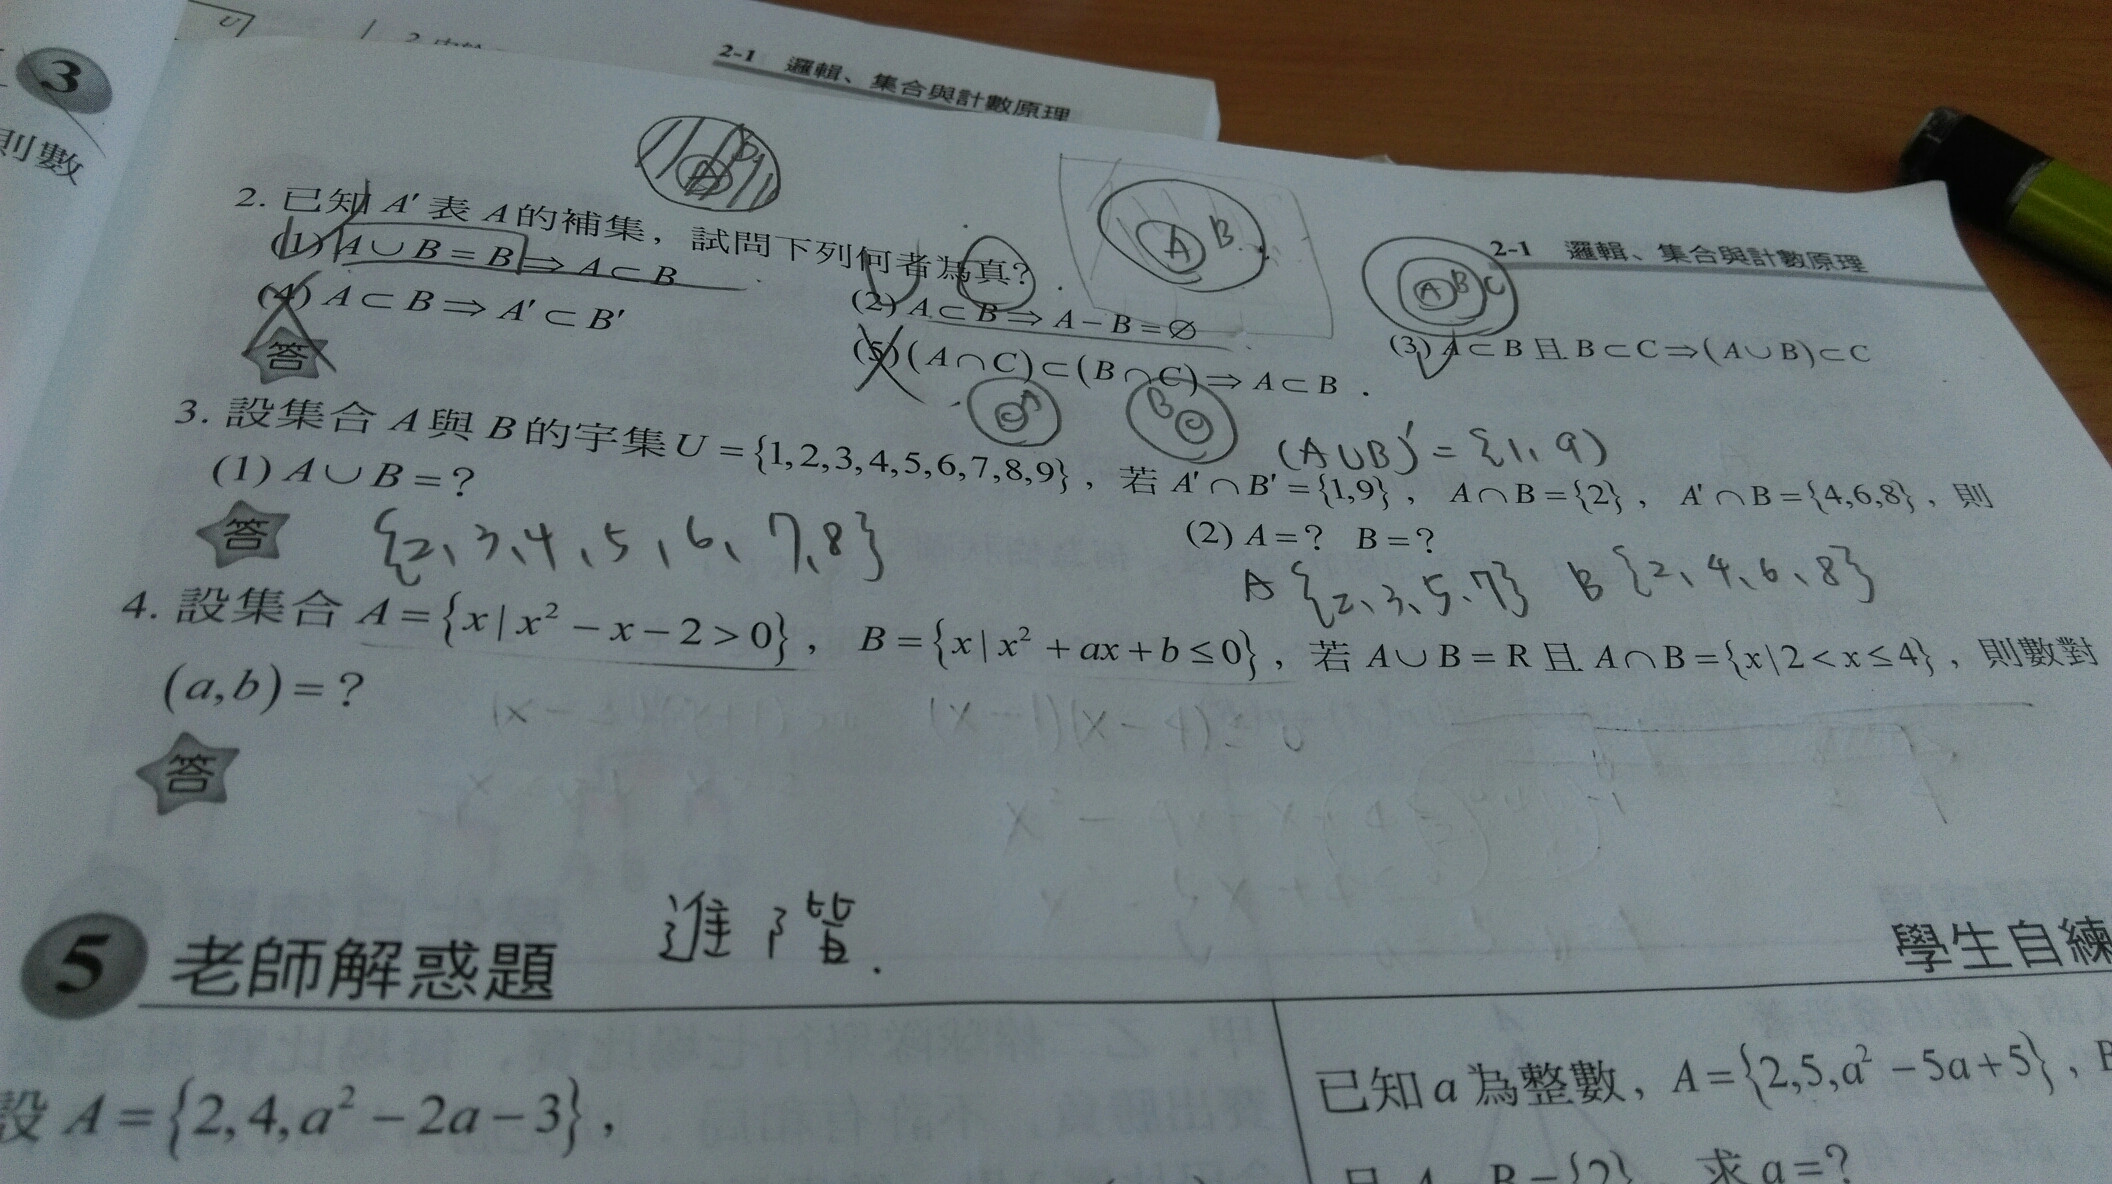 2-1 邏輯、集合與計數原理
3
則數
2-1 邏輯、集合與計數原理
2. 已知 A′ 表 A 的補集，試問下列何者為真?
(1) A∪B=B⇒A⊂B
(2) A⊂B⇒A−B=∅
(3) A⊂B 且 B⊂C⇒(A∪B)⊂C
(4) A⊂B⇒A′⊂B′
(5) (A∩C)⊂(B∩C)⇒A⊂B．
答
A B
A B C
A
B
(A∪B)′={1、9)
3. 設集合 A 與 B 的宇集 U={1,2,3,4,5,6,7,8,9}，若 A′∩B′={1,9}，A∩B={2}，A′∩B={4,6,8}，則
(1) A∪B=?
(2) A=? B=?
答 {2、3、4、5、6、7、8}
A {2、3、5、7} B {2、4、6、8}
4. 設集合 A={x|x²−x−2>0}，B={x|x²+ax+b≤0}，若 A∪B=R 且 A∩B={x|2<x≤4}，則數對
(a,b)=?
答
進階.
5 老師解惑題
學生自練
設 A={2,4,a²−2a−3}，
已知 a 為整數，A={2,5,a²−5a+5}，B
B={2} 求 a=?